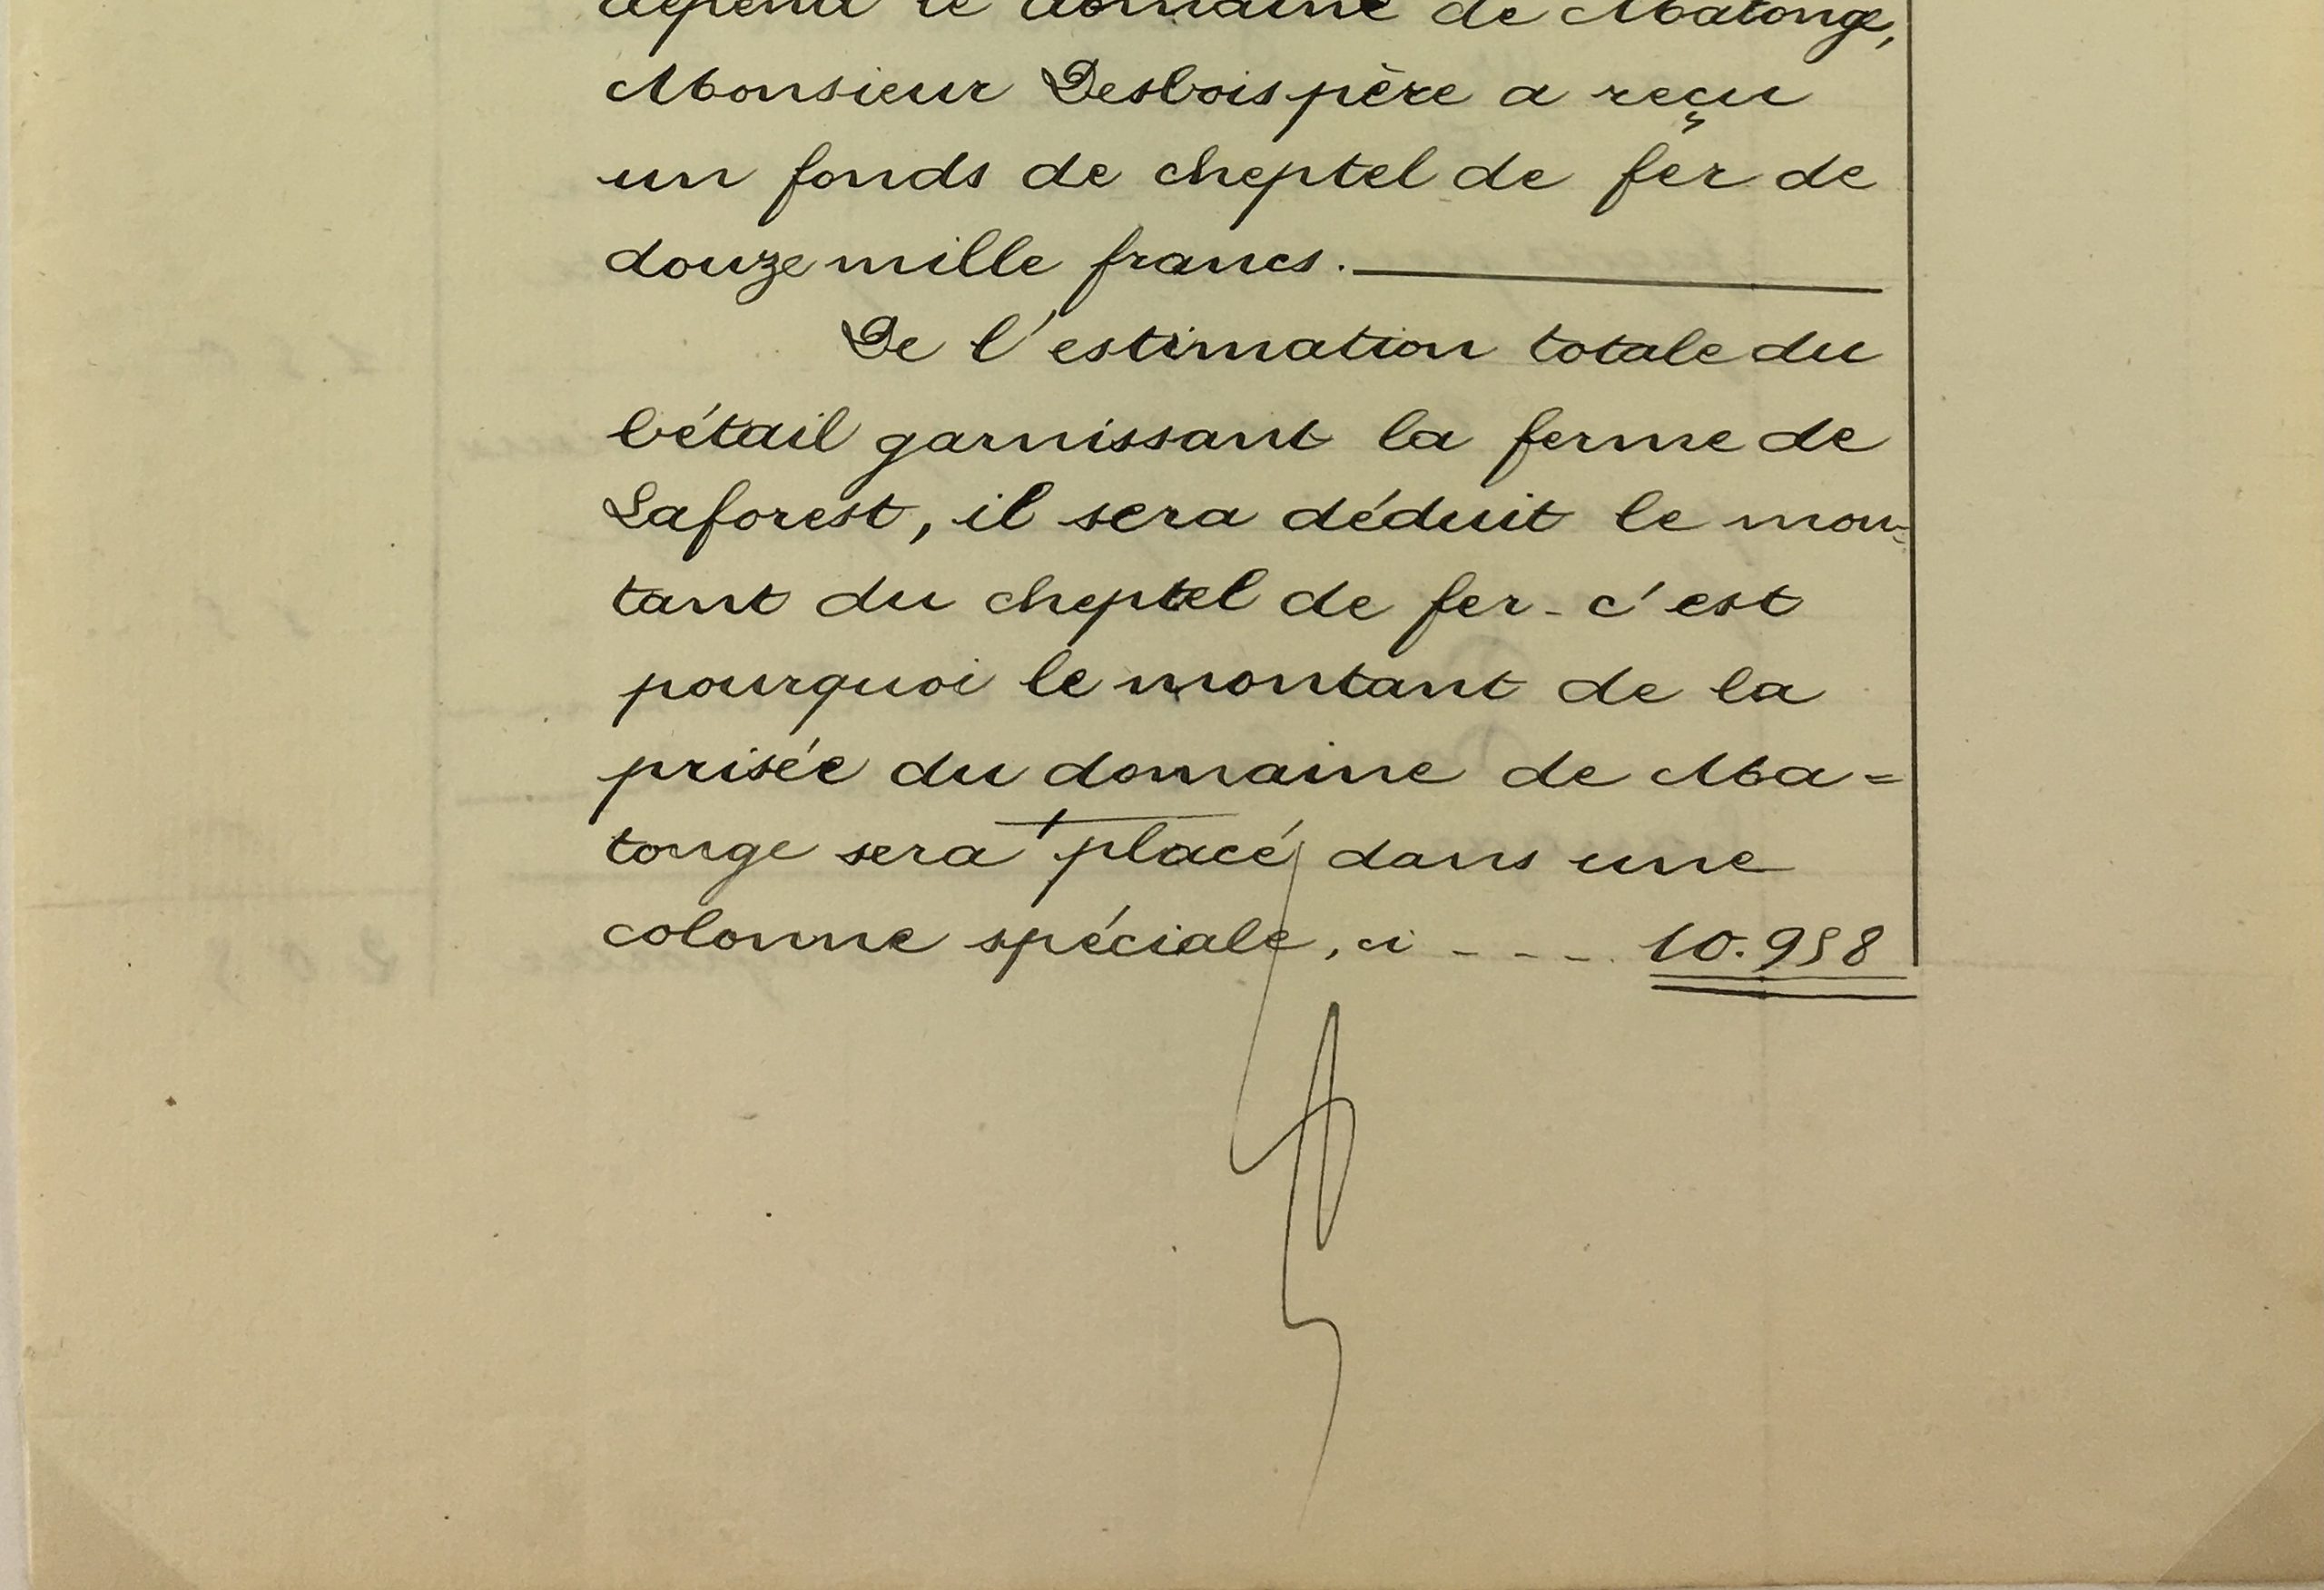 dépend le domaine de Matonge,
Monsieur Desbois père a reçu
un fonds de cheptel de fer de
douze mille francs.
De l'estimation totale du
bétail garnissant la ferme de
Laforest, il sera déduit le mon-
tant du cheptel de fer - c'est
pourquoi le montant de la
prisée du domaine de Ma=
tonge sera placé dans une
colonne spéciale, ci - - - 10.958